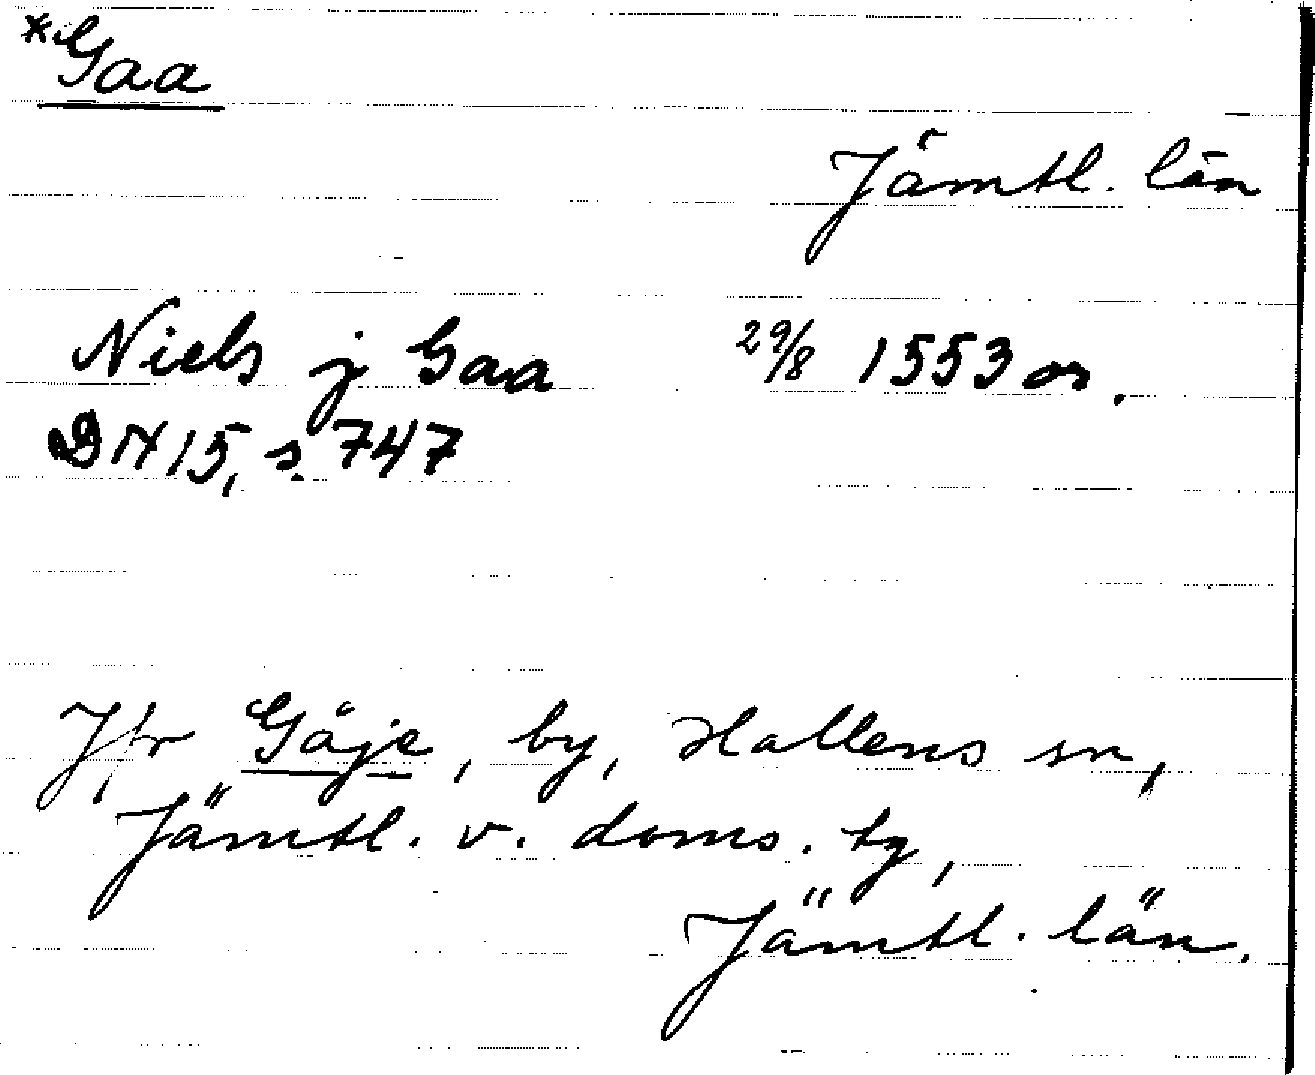 *Gaa
Jämtl. län
Niels j Gaa 29/8 1553 or.
DN 15, s. 747
Jfr Gåje, by, Hallens sn,
Jämtl. v. doms. tg,
Jämtl. län.